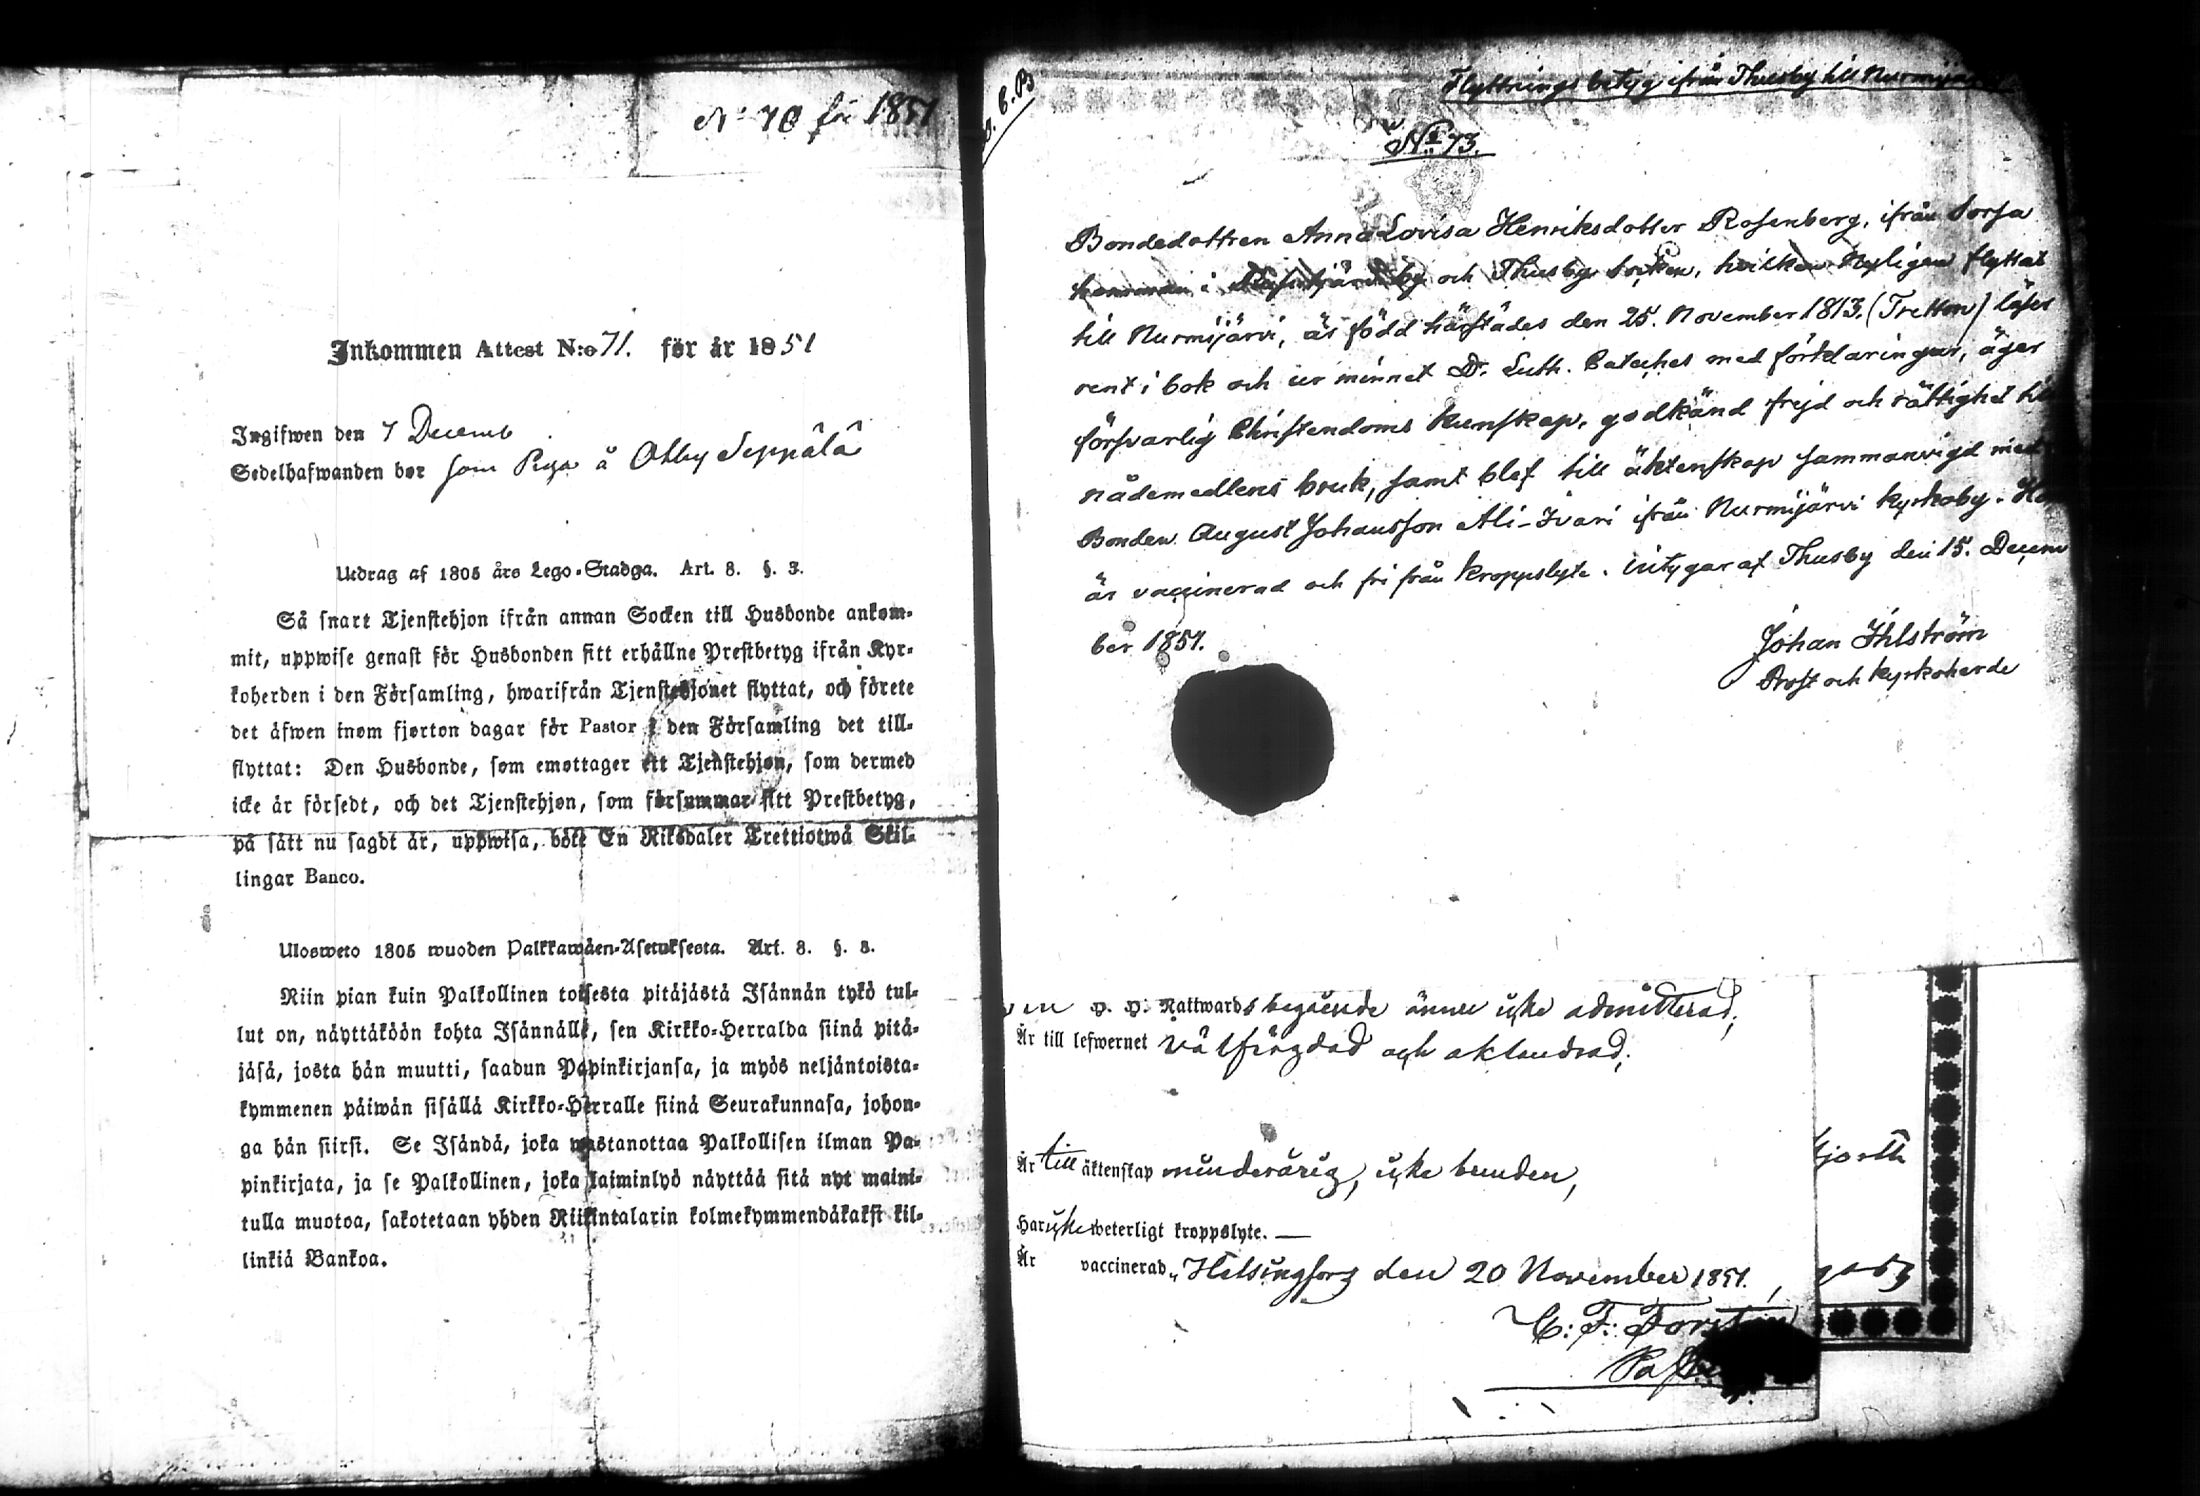 No 70 för 1851
Inkommen Attest N:o 71. för år 1851
Ingifwen den 7 Decemb
Sedelhafwanden bor som Piga å Ollby Seppälä
Utdrag af 1805 års Lego-Stadga. Art. 8. §. 3.
Så snart Tjenstehjon ifrån annan Socken till Husbonde ankom-
mit, uppwise genast för Husbonden sitt erhållne Prestbetyg ifrån Kyr-
koherden i den Församling, hwarifrån Tjenstehjonet flyttat, och förete
det åfwen inom fjorton dagar för Pastor i den Församling det till-
flyttat: Den Husbonde, som emottager ett Tjenstehjon, som dermed
icke är försedt, och det Tjenstehjon, som försummar sitt Prestbetyg,
på sätt nu sagdt är, uppwisa, böte En Riksdaler Trettiotwå Skil-
lingar Banco.
Ulosweto 1805 wuoden Palkkawäen-Asetuksesta. Art. 8. §. 3.
Niin pian kuin Palkollinen toisesta pitäjästä Isännän tykö tul-
lut on, näyttäköön kohta Isännälle, sen Kirkko-Herralda siinä pitä-
jäsä, josta hän muutti, saadun Papinkirjansa, ja myös neljäntoista-
kymmenen päiwän sisällä Kirkko-Herralle siinä Seurakunnasa, johon-
ga hän siirsi. Se Isändä, joka wastanottaa Palkollisen ilman Pa-
pinkirjata, ja se Palkollinen, joka laiminlyö näyttää sitä nyt maini-
tulla muotoa, sakotetaan yhden Riikintalarin kolmekymmendäkaksi kil-
linkiä Bankoa.
Flyttnings betyg ifrån Thusby till
No 73.
Bondedottren Anna Lovisa Henriksdotter Rosenberg, ifrån Sorsa
hemman i och Thusby Socken, hvilken Nyligen flyttat
till Nurmijärvi, är född härstädes den 25. November 1813. (Tretton) läser
rent i bok och ur minnet D. Luth. Cateches med förklaringar, äger
försvarlig Christendoms kunskap, godkänd frejd och rättighet till
nådemedlens bruk, samt blef till äktenskap sammanvigd med
Bonden August Johansson Ali-Ivari ifrån Nurmijärvi kyrkoby. Hon
är vaccinerad och fri från kroppslyte. intygar af Thusby den 15. Decem
ber 1851.
Johan Ihlström
Prost och kyrkoherde
H. H. Nattwards begående ännu icke admitterad;
Är till lefwernet välfrägdad och aktendrad;
Är till äktenskap minderårig, icke bunden,
Har icke weterligt kroppslyte. —
Är vaccinerad, Helsingfors den 20 November 1851.
C: F: Forstén